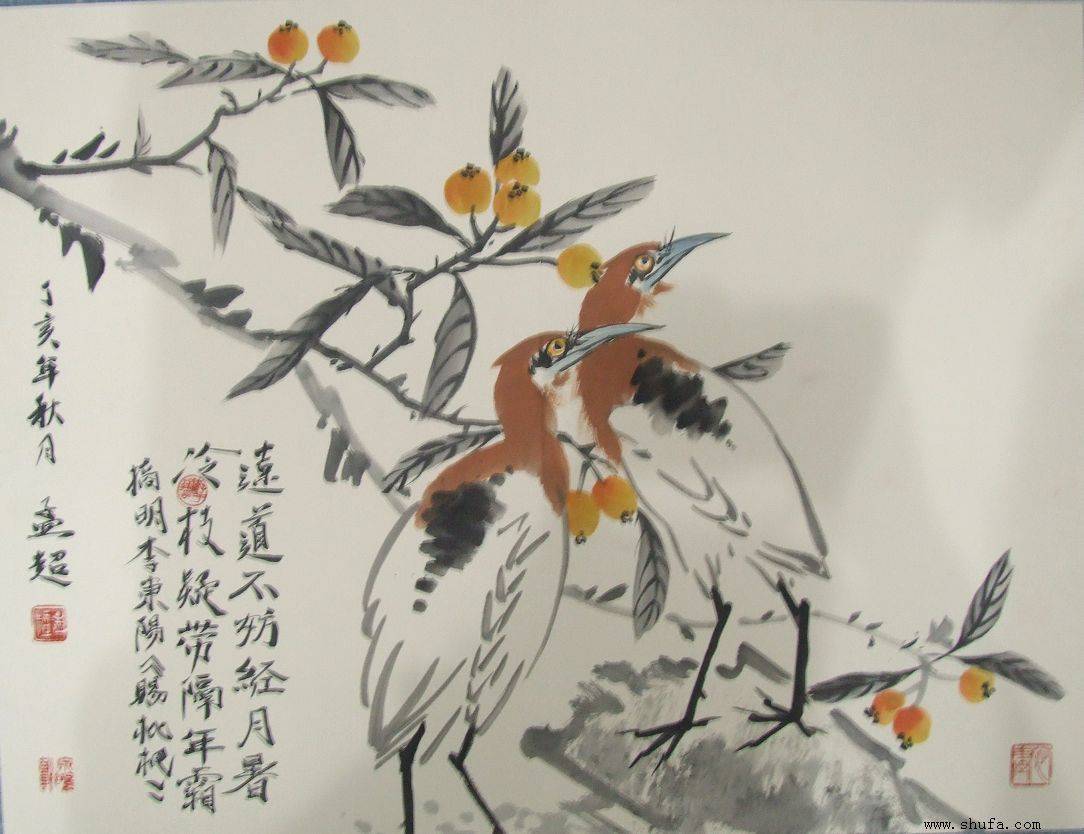 遠道不妨経月暑
冷枝疑带隔年霜
摘明李東陽《賜枇杷》
丁亥年秋月 孟超
www.shufa.com